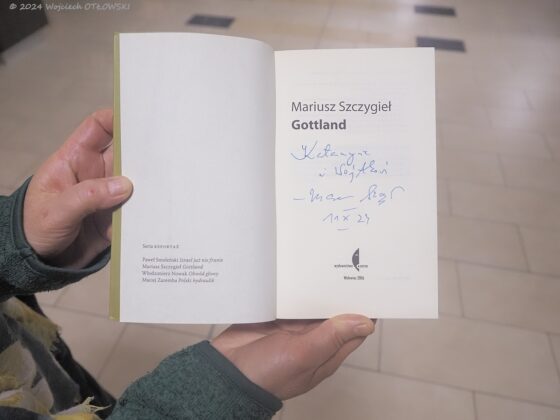 © 2024 Wojciech OTŁOWSKI
Seria REPORTAŻ
Paweł Smoleński Izrael już nie frunie
Mariusz Szczygieł Gottland
Włodzimierz Nowak Obwód głowy
Maciej Zaremba Polski hydraulik
Mariusz Szczygieł
Gottland
Katarzynie
i Wojtkowi
11 X 24
wydawnictwo czarne
Wołowiec 2006